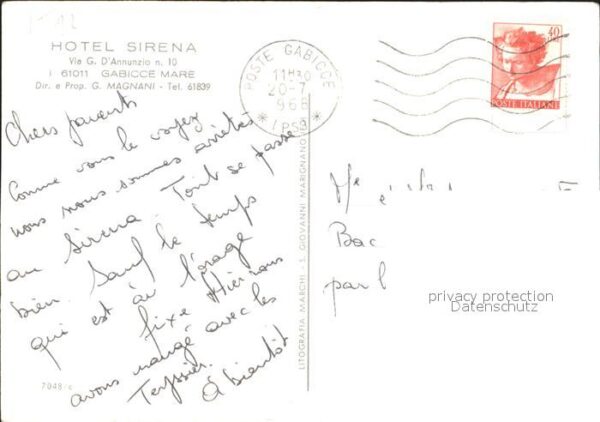 HOTEL SIRENA
Via G. D'Annunzio n. 10
I 61011 GABICCE MARE
Dir. e Prop. G. MAGNANI - Tel. 61839
Chers parents
Comme vous le voyez
nous nous sommes arrêtés
au Sirena. Tout se passe
bien. Sauf le temps
qui est à l'orage
fixe Hier nous
avons mangé avec les
Teyssier.
A bientôt
7048/c
LITOGRAFIA MARCHI - S. GIOVANNI MARIGNANO
POSTE GABICCE
20-7
1968
(PS)
40
POSTE ITALIANE
Me
Bac
par l
privacy protection
Datenschutz